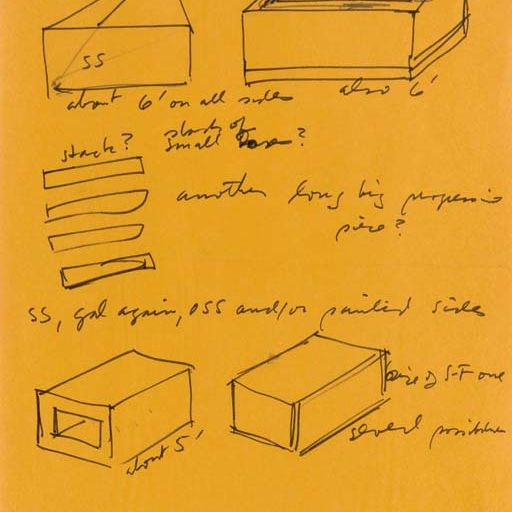 SS
about 6' on all sides
also 6'
stack? stack of
small boxes?
another long big progression
piece?
SS, gal again, PSS and/or painted sides
size of S-F one
several possibilities
about 5'